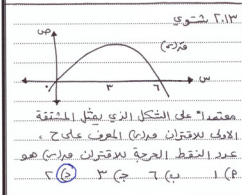 ٢٠١٣ شتوي
ص
قَ(س)
س
٣ ٦
معتمداً على الشكل الذي يمثل المشتقة
الاولى للاقتران ق(س) المعرف على ح ،
عدد النقط الحرجة للاقتران ق(س) هو
١ (٢ ب) ٦ ج) ٣ د) ٢